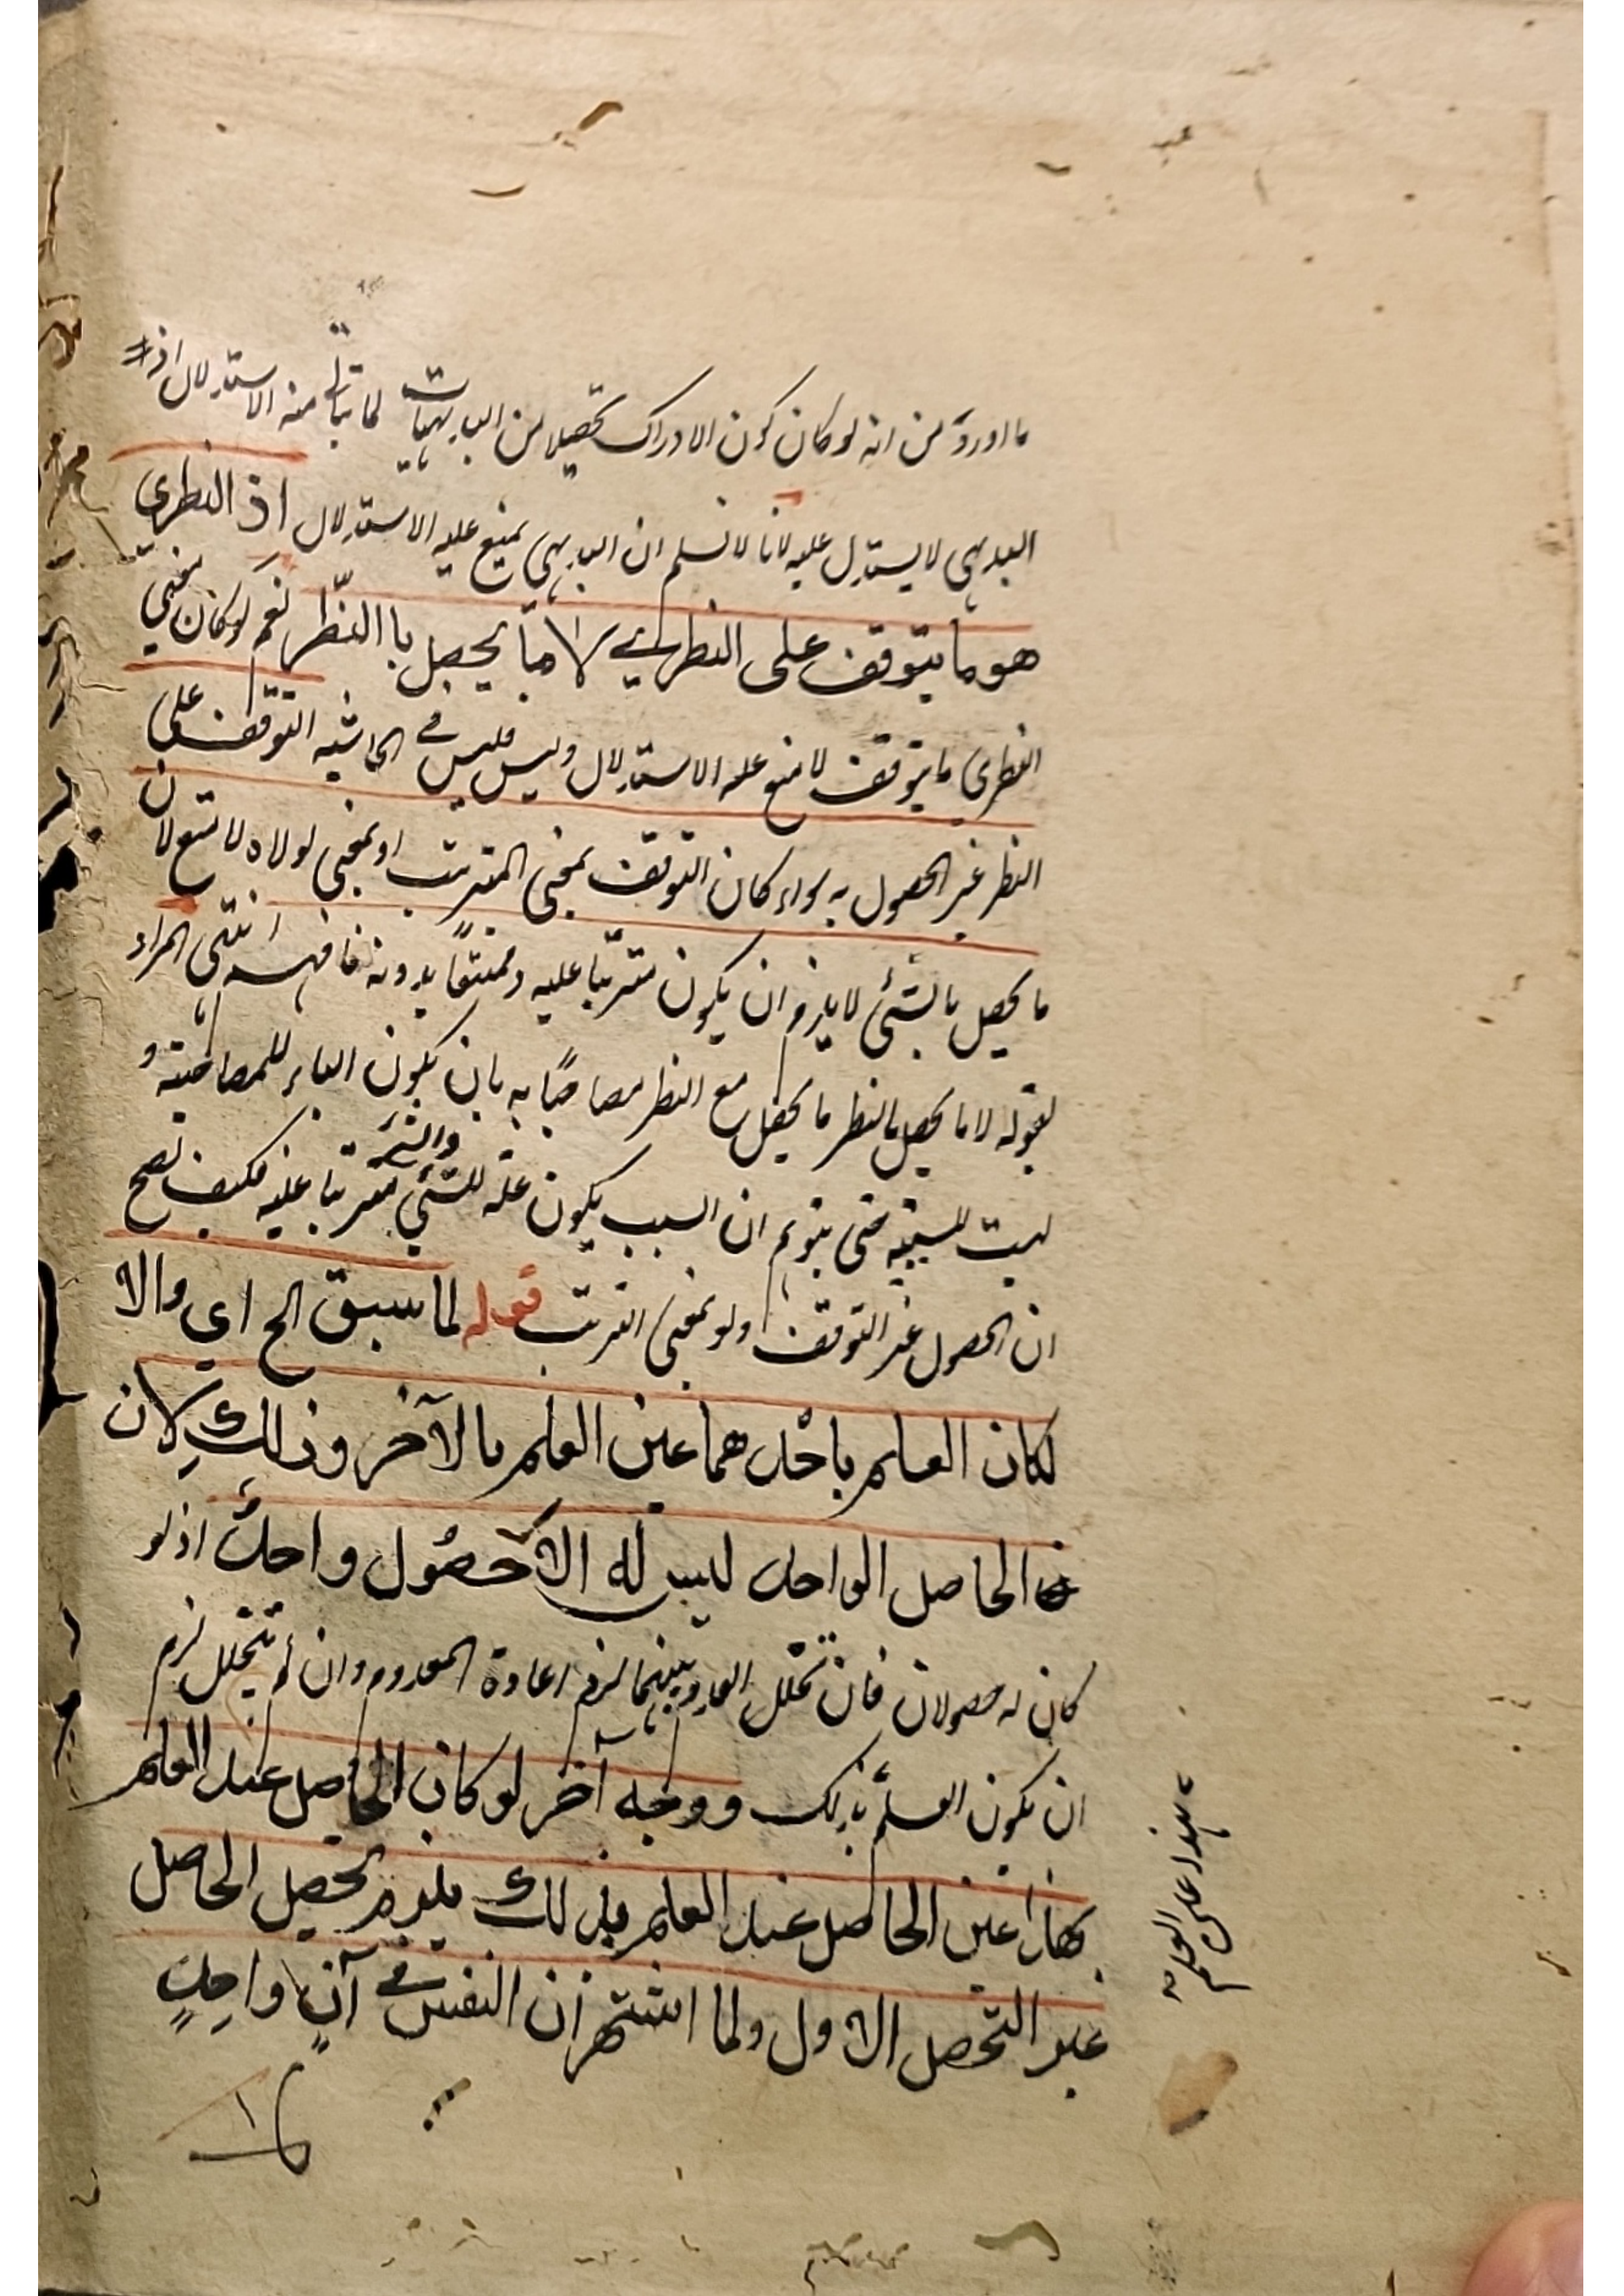 ما اورد من انه لو كان كون الادراك تحصيلا من البديهيات لما يتأتى منه الاستدلال اذ
البديهى لا يستدل عليه لانا لا نسلم ان البديهى يمتنع عليه الاستدلال اذ النظري
هو ما يتوقف على النظر لا ما يحصل با النظر نعم لو كان معنى
النظرى ما يتوقف لامتنع عليه الاستدلال وليس فليس في الحاشيه التوقف على
النظر غير الحصول به سواء كان التوقف بمعنى الترتب او بمعنى لولاه لامتنع لان
ما يحصل بالشئ لا يلزم ان يكون مترتبا عليه وممتنعا بدونه فافهم انتهى المراد
بقوله لا ما يحصل بالنظر ما يحصل مع النظر مصاحبًا به بان يكون الباء للمصاحبة و
ليست للسببية حتى يتوهم ان السبب يكون علة للشئ والشئ مترتبا عليه فكيف يصح
ان الحصول غير التوقف ولو بمعنى الترتب قوله لما سبق الخ اي والا
لكان العلم باحدهما عين العلم بالآخر وذلك لان
الحاصل الواحد ليس له الا حصول واحد اذ لو
كان له حصولان فان تخلل العدم بينهما لزم اعادة المعدوم وان لم يتخلل لزم
ان يكون العلم بذلك ووجه آخر لو كان الحاصل عند العلم
بهذا عين الحاصل عند العلم بذلك يلزم تحصيل الحاصل
غير التحصل الاول ولما اشتهر ان النفس في آنٍ واحدٍ
بهذا عين العلم